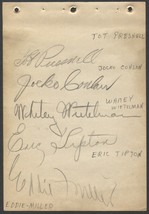 TOT PRESNELL
Tot Presnell
Jocko Conlan
JOCKO CONLAN
Whitey Wietelmann
WHITEY WIETELMANN
Eric Tipton
ERIC TIPTON
Eddie Miller
EDDIE MILLER